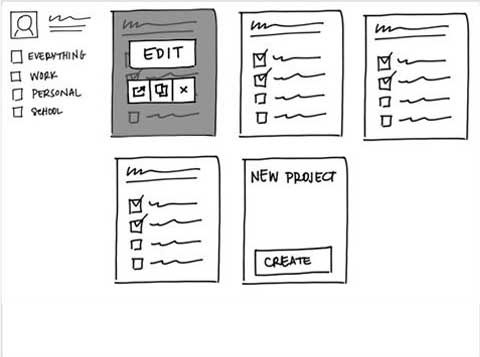 EVERYTHING
WORK
PERSONAL
SCHOOL
EDIT
NEW PROJECT
CREATE